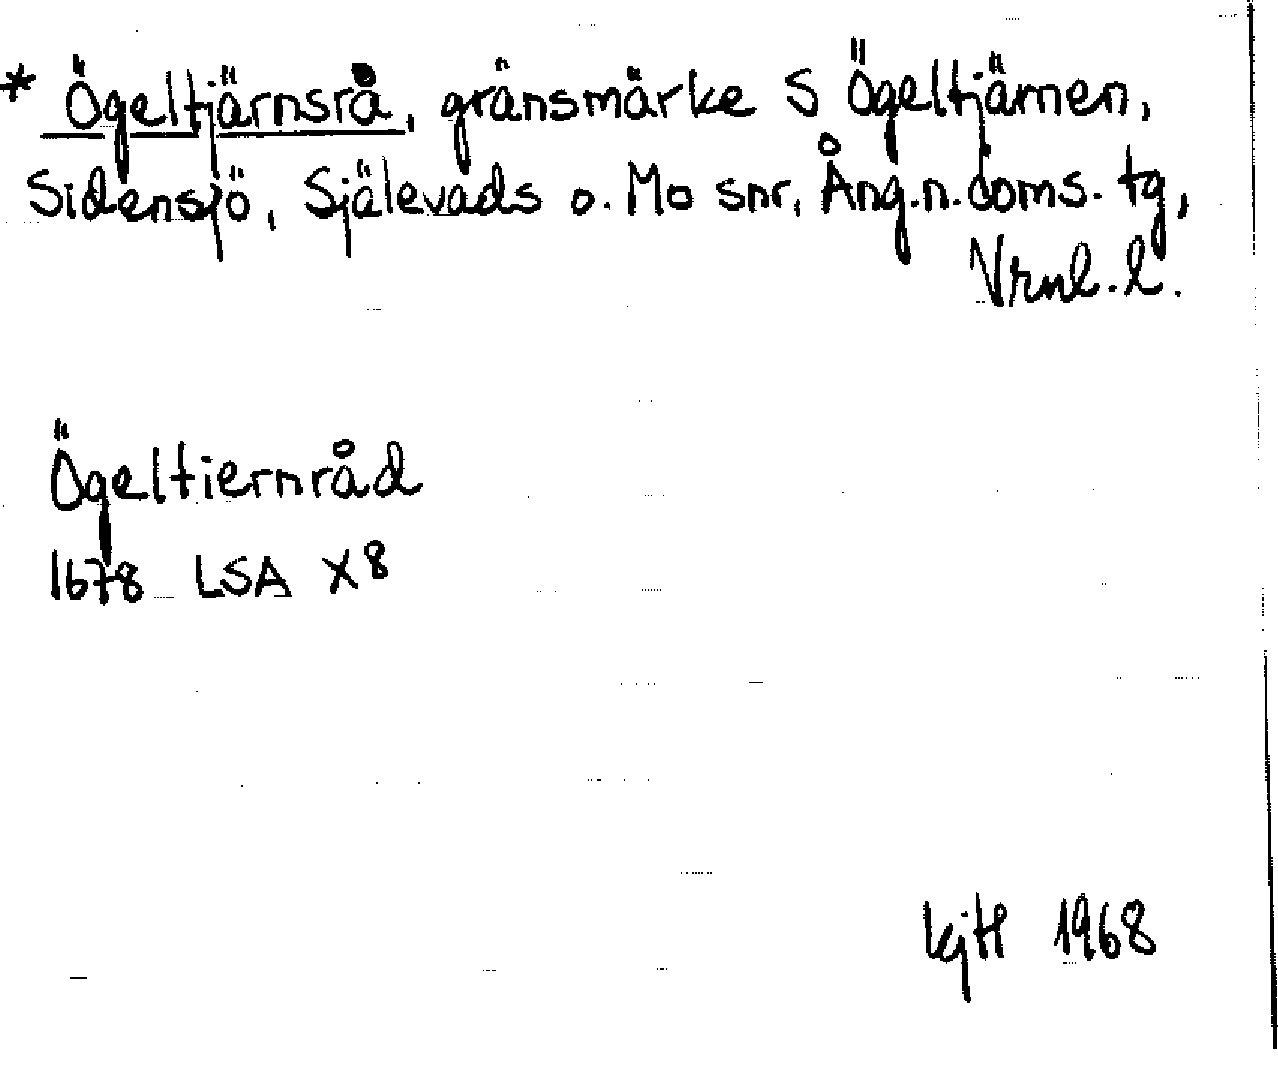 * Ögeltjärnsrå, gränsmärke S Ögeltjärnen,
Sidensjö, Själevads o. Mo snr, Ång.n.doms.tg,
Vrnl.l.
Ögeltiernråd
1678 LSA X8
KjH 1968